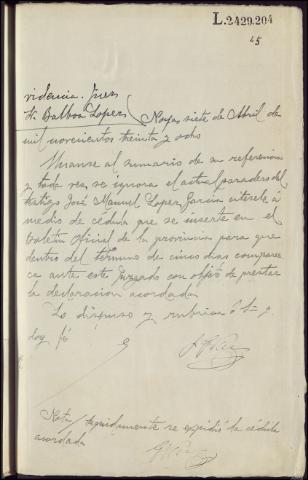 L.2429.204
45
videncia. Juez
Sr. Balboa Lopez
Noya siete de Abril de
mil novecientos treinta y ocho
Unanse al sumario de su referencia
y toda vez se ignora el actual paradero del
testigo José Manuel Lopez García citesele a
medio de cédula que se inserte en el
Boletin Oficial de la provincia para que
dentro del término de cinco dias comparez
ca ante este Juzgado con objeto de prestar
la declaracion acordada
Lo dispuso y rubrica S Sª y
doy fé
Nota/ Seguidamente se expidió la cédula
acordada